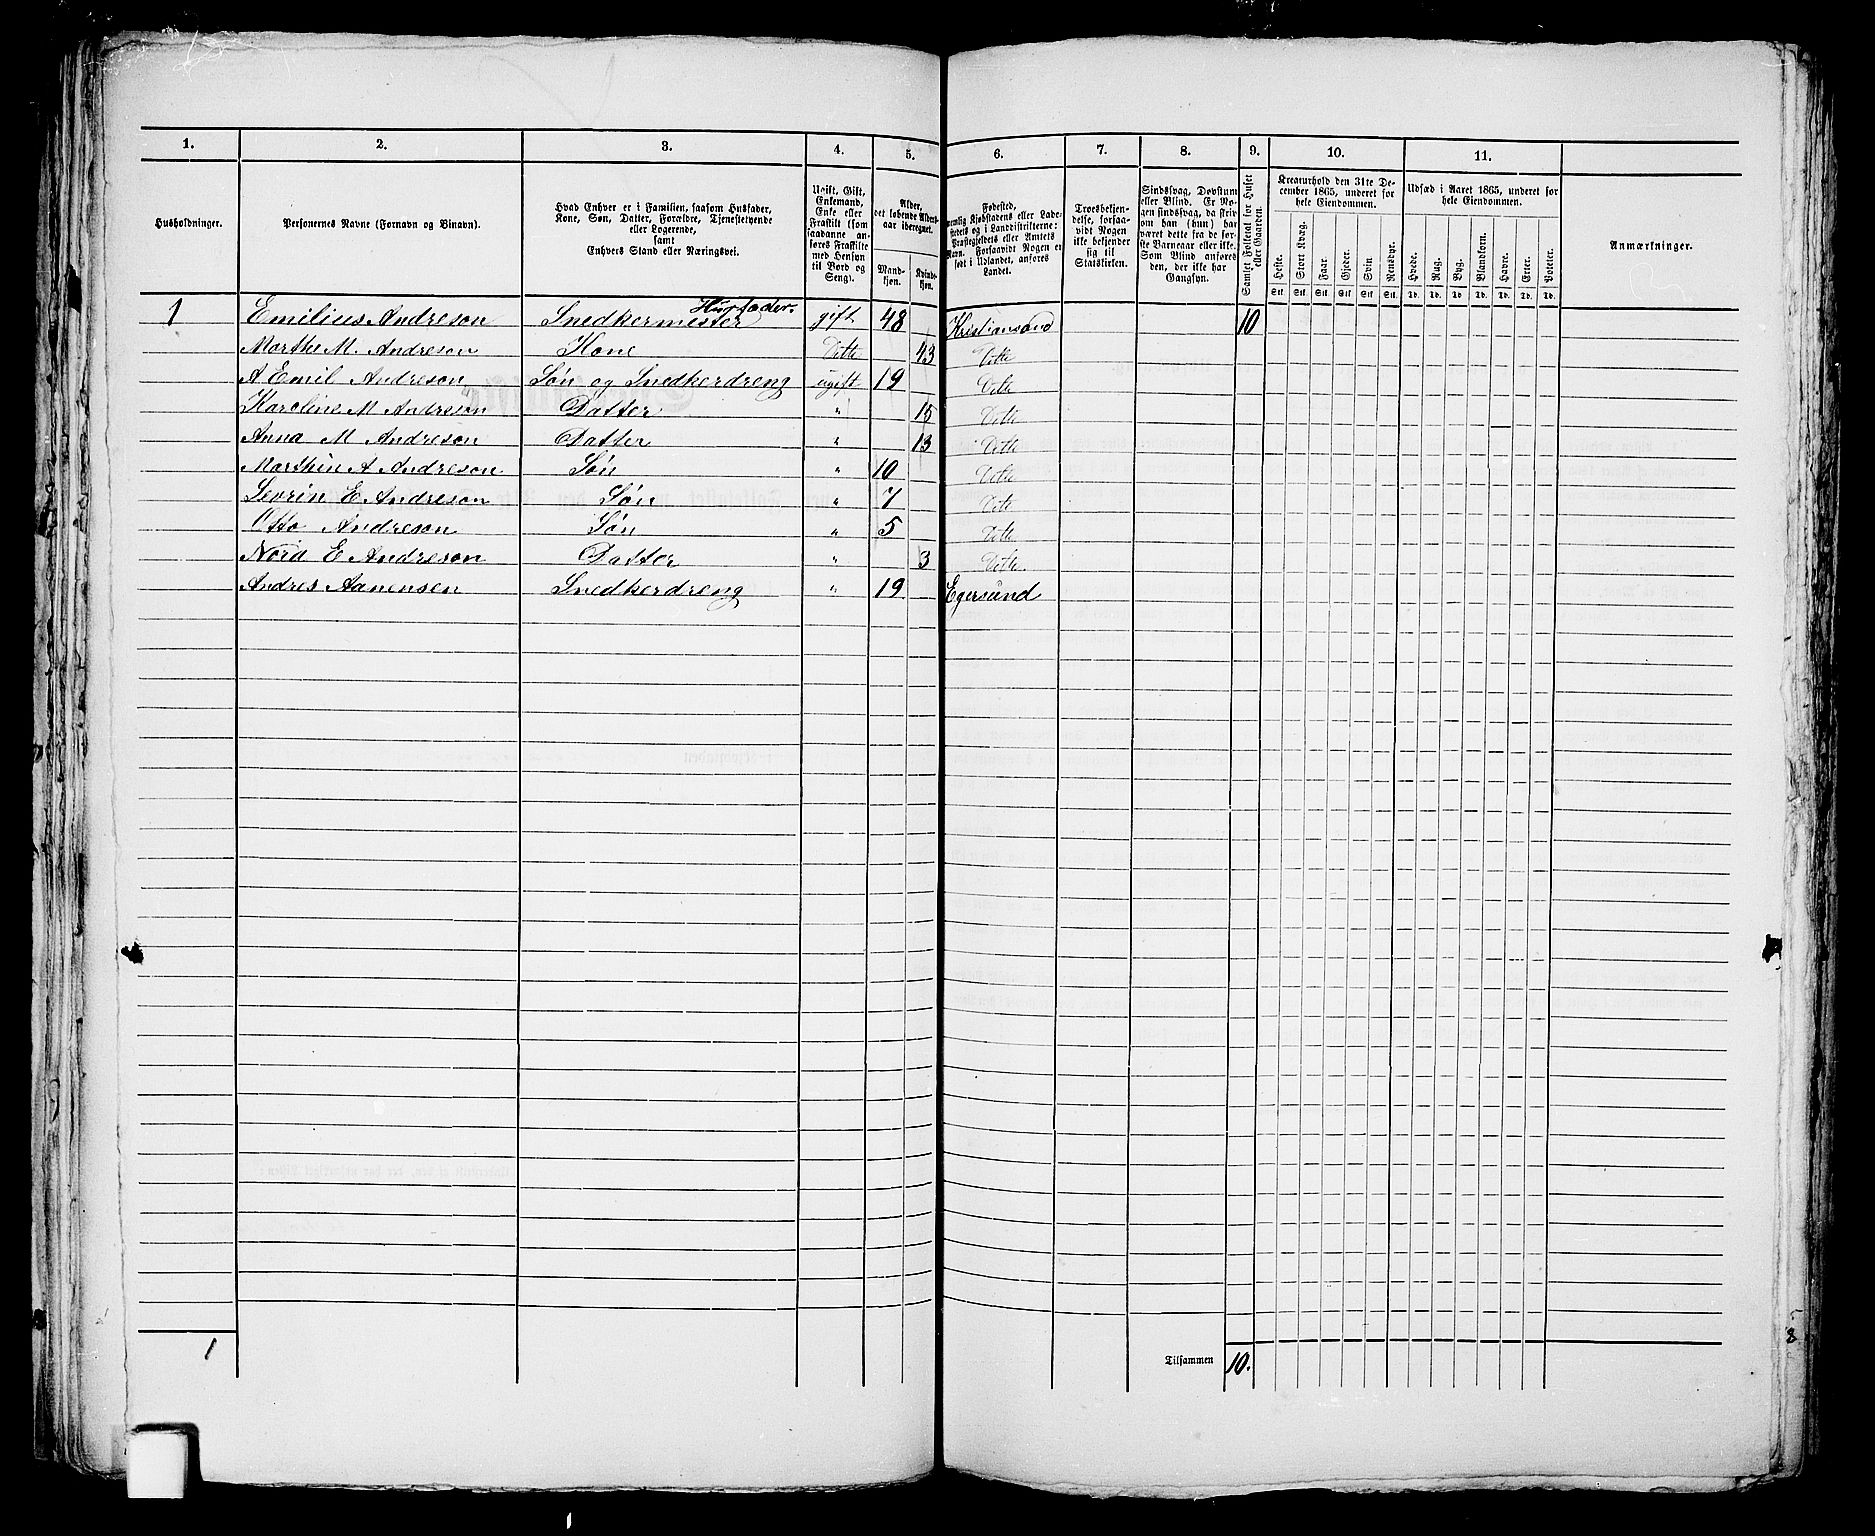 1. 2. 3. 4. 5. 6. 7. 8. 9. 10. 11.
Husholdninger.
Personernes Navne (Fornavn og Binavn).
Hvad Enhver er i Familien, saasom Husfader,
Kone, Søn, Datter, Forældre, Tjenestetyende
eller Logerende,
samt
Enhvers Stand eller Næringsvei.
Ugift, Gift,
Enkemand,
Enke eller
Fraskilt (som
saadanne an-
føres Fraskilte
med Hensyn
til Bord og
Seng).
Alder,
det løbende Alders-
aar iberegnet.
Mand-
kjøn.
Kvinde-
kjøn.
Fødested,
nemlig Kjøbstadens eller Lade-
stedets og i Landdistrikterne:
Præstegjeldets eller Amtets
Navn. Forsaavidt Nogen er
født i Udlandet, anføres
Landet.
Troesbekjen-
delse, forsaa-
vidt Nogen
ikke bekjender
sig til
Statskirken.
Sindssvag, Døvstum
eller Blind. Er No-
gen sindssvag, da skri-
ves om han (hun) har
været dette fra de før-
ste Barneaar eller ikke.
Som Blind anføres
den, der ikke har
Gangsyn.
Samlet Folketal for Huset
eller Gaarden.
Kreaturhold den 31te De-
cember 1865, underet for
hele Eiendommen.
Heste. Stort Kvæg. Faar. Gjeder. Svin. Rensdyr.
Stk. Stk. Stk. Stk. Stk. Stk.
Udsæd i Aaret 1865, underet for
hele Eiendommen.
Hvede. Rug. Byg. Blandkorn. Havre. Erter. Poteter.
Td. Td. Td. Td. Td. Td. Td.
Anmærkninger.
1 Emilius Andreson Snedkermester Husfader. gift 48 Kristiansand 10
Marthe M. Andreson Kone Ditto 43 Ditto
A Emil Andreson Søn og Snedkerdreng ugift 19 Ditto
Karoline M Andreson Datter " 15 Ditto
Anna M Andreson Datter " 13 Ditto
Marthin A Andreson Søn " 10 Ditto
Sevrin E Andreson Søn " 7 Ditto
Otto Andreson Søn " 5 Ditto
Nora E Andreson Datter " 3 Ditto
Andres Aanensen Snedkerdreng " 19 Egersund
1 Tilsammen 10.